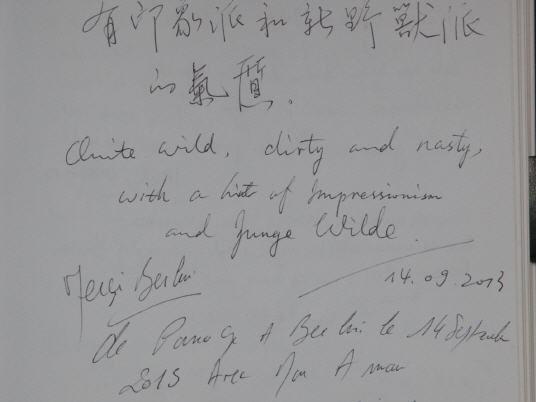 有印象派和新野獸派
的氣質.
Quite wild, dirty and nasty,
with a hint of Impressionism
and Junge Wilde.
Merci Berlin
14.09.2013
de A Berlin le 14 Septembre
2013 Avec Mon